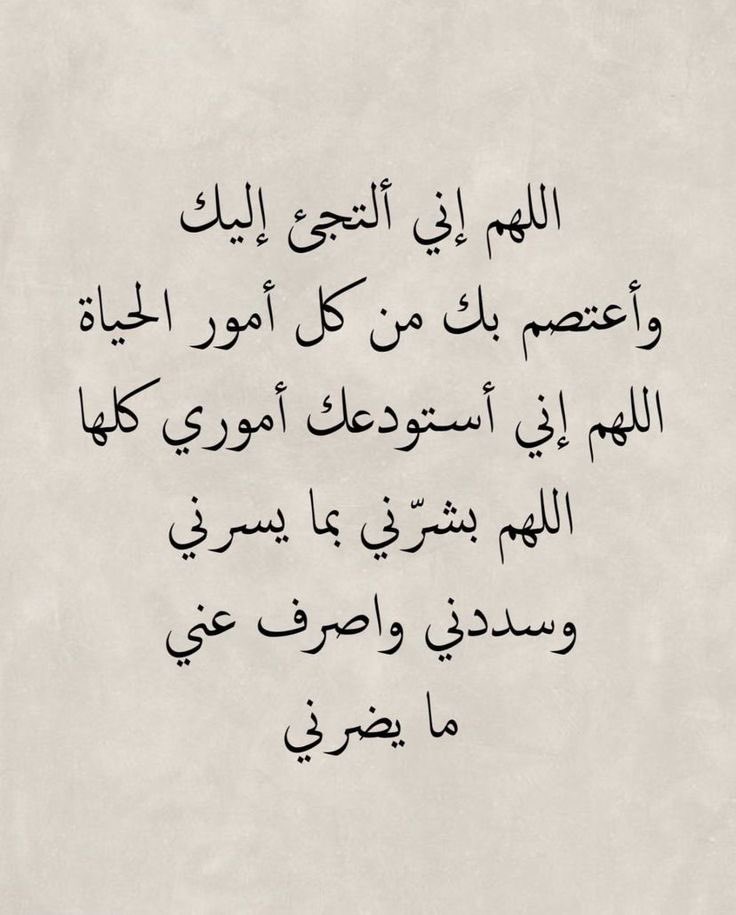 اللهم إني ألتجئ إليك
وأعتصم بك من كل أمور الحياة
اللهم إني أستودعك أموري كلها
اللهم بشرّني بما يسرني
وسددني واصرف عني
ما يضرني